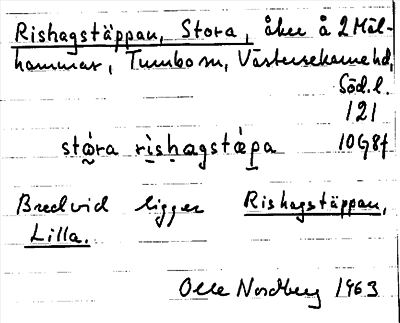 Rishagstäppan, Stora, åker å 2 Mäl-
hammar, Tumbo sn, Västerrekarne hd,
Söd.l.
121
stǿra rishagstäpa 10G8f
Bredvid ligger Rishagstäppan,
Lilla.
Olle Nordberg 1963